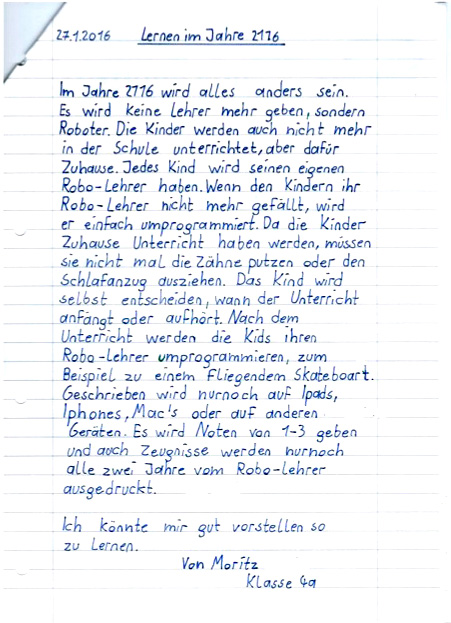 27.1.2016 Lernen im Jahre 2116
Im Jahre 2116 wird alles anders sein.
Es wird keine Lehrer mehr geben, sondern
Roboter. Die Kinder werden auch nicht mehr
in der Schule unterrichtet, aber dafür
Zuhause. Jedes Kind wird seinen eigenen
Robo-Lehrer haben. Wenn den Kindern ihr
Robo-Lehrer nicht mehr gefällt, wird
er einfach umprogrammiert. Da die Kinder
Zuhause Unterricht haben werden, müssen
sie nicht mal die Zähne putzen oder den
Schlafanzug ausziehen. Das Kind wird
selbst entscheiden, wann der Unterricht
anfängt oder aufhört. Nach dem
Unterricht werden die Kids ihren
Robo-Lehrer umprogrammieren, zum
Beispiel zu einem Fliegendem Skateboart.
Geschrieben wird nurnoch auf Ipads,
Iphones, Mac's oder auf anderen
Geräten. Es wird Noten von 1-3 geben
und auch Zeugnisse werden nurnoch
alle zwei Jahre vom Robo-Lehrer
ausgedruckt.
Ich könnte mir gut vorstellen so
zu Lernen.
Von Moritz
Klasse 4a